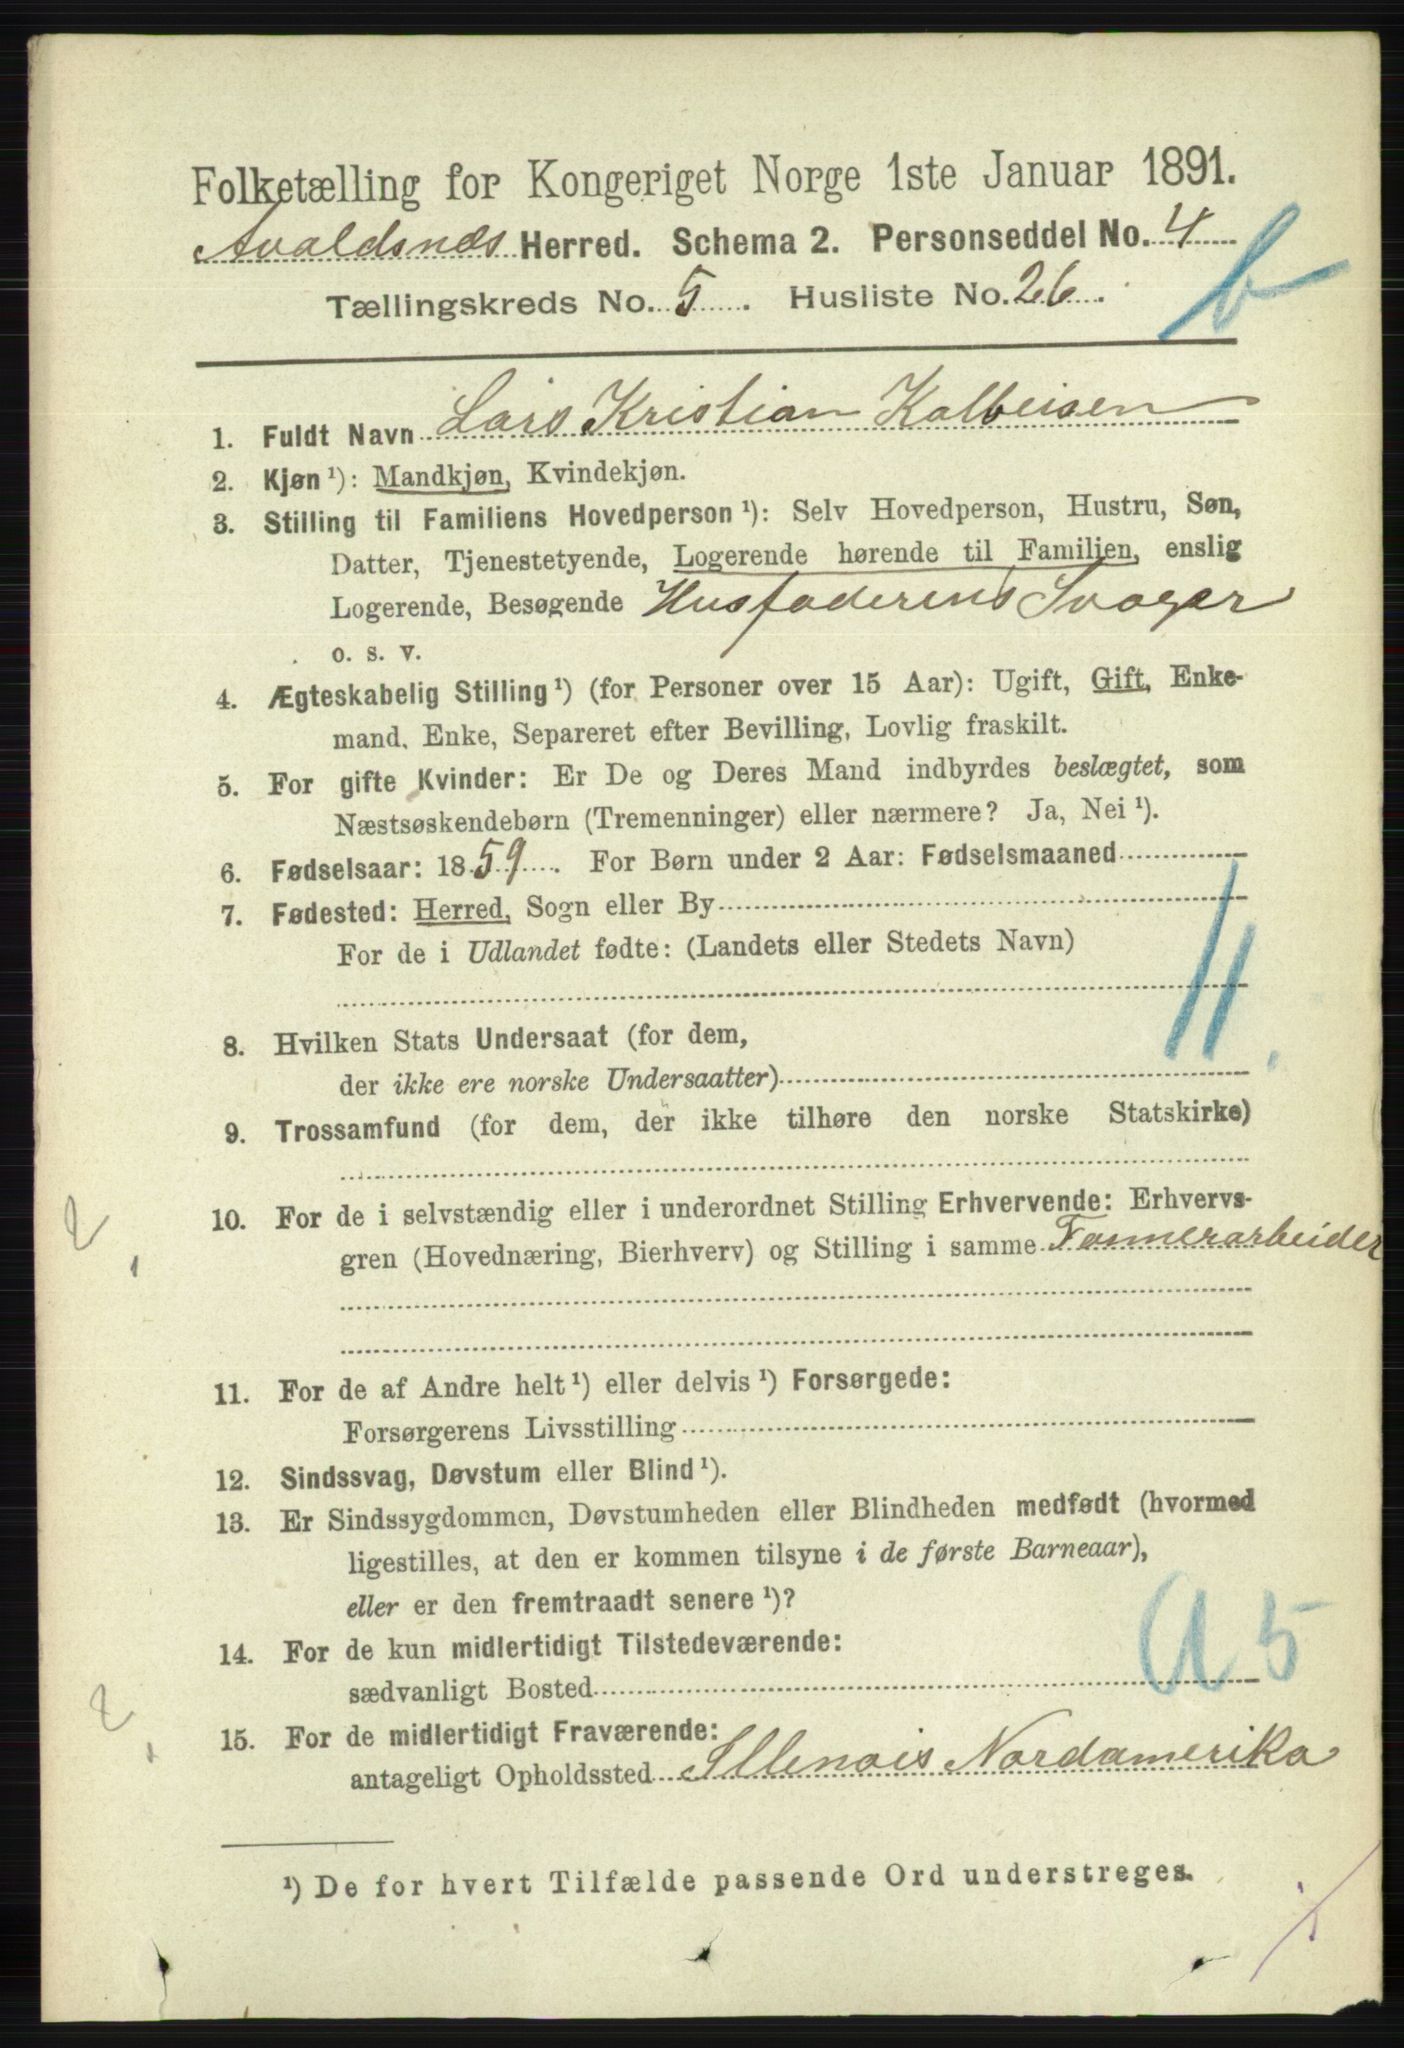 Folketælling for Kongeriget Norge 1ste Januar 1891.
Avaldsnes Herred. Schema 2. Personseddel No. 4
b
Tællingskreds No. 5. Husliste No. 26.
1. Fuldt Navn Lars Kristian Kolbeisen
2. Kjøn¹): Mandkjøn, Kvindekjøn.
3. Stilling til Familiens Hovedperson¹): Selv Hovedperson, Hustru, Søn,
Datter, Tjenestetyende, Logerende hørende til Familien, enslig
Logerende, Besøgende Husfaderens Svoger
o. s. v.
4. Ægteskabelig Stilling¹) (for Personer over 15 Aar): Ugift, Gift, Enke-
mand, Enke, Separeret efter Bevilling, Lovlig fraskilt.
5. For gifte Kvinder: Er De og Deres Mand indbyrdes beslægtet, som
Næstsøskendebørn (Tremenninger) eller nærmere? Ja, Nei¹).
6. Fødselsaar: 1859. For Børn under 2 Aar: Fødselsmaaned
7. Fødested: Herred, Sogn eller By
For de i Udlandet fødte: (Landets eller Stedets Navn)
8. Hvilken Stats Undersaat (for dem,
der ikke ere norske Undersaatter)
9. Trossamfund (for dem, der ikke tilhøre den norske Statskirke)
10. For de i selvstændig eller i underordnet Stilling Erhvervende: Erhvervs-
gren (Hovednæring, Bierhverv) og Stilling i samme Farmerarbeider
11. For de af Andre helt¹) eller delvis¹) Forsørgede:
Forsørgerens Livsstilling
12. Sindssvag, Døvstum eller Blind¹).
13. Er Sindssygdommen, Døvstumheden eller Blindheden medfødt (hvormed
ligestilles, at den er kommen tilsyne i de første Barneaar),
eller er den fremtraadt senere¹)?
14. For de kun midlertidigt Tilstedeværende:
sædvanligt Bosted
a 5
15. For de midlertidigt Fraværende:
antageligt Opholdssted Illenois Nordamerika
¹) De for hvert Tilfælde passende Ord understreges.